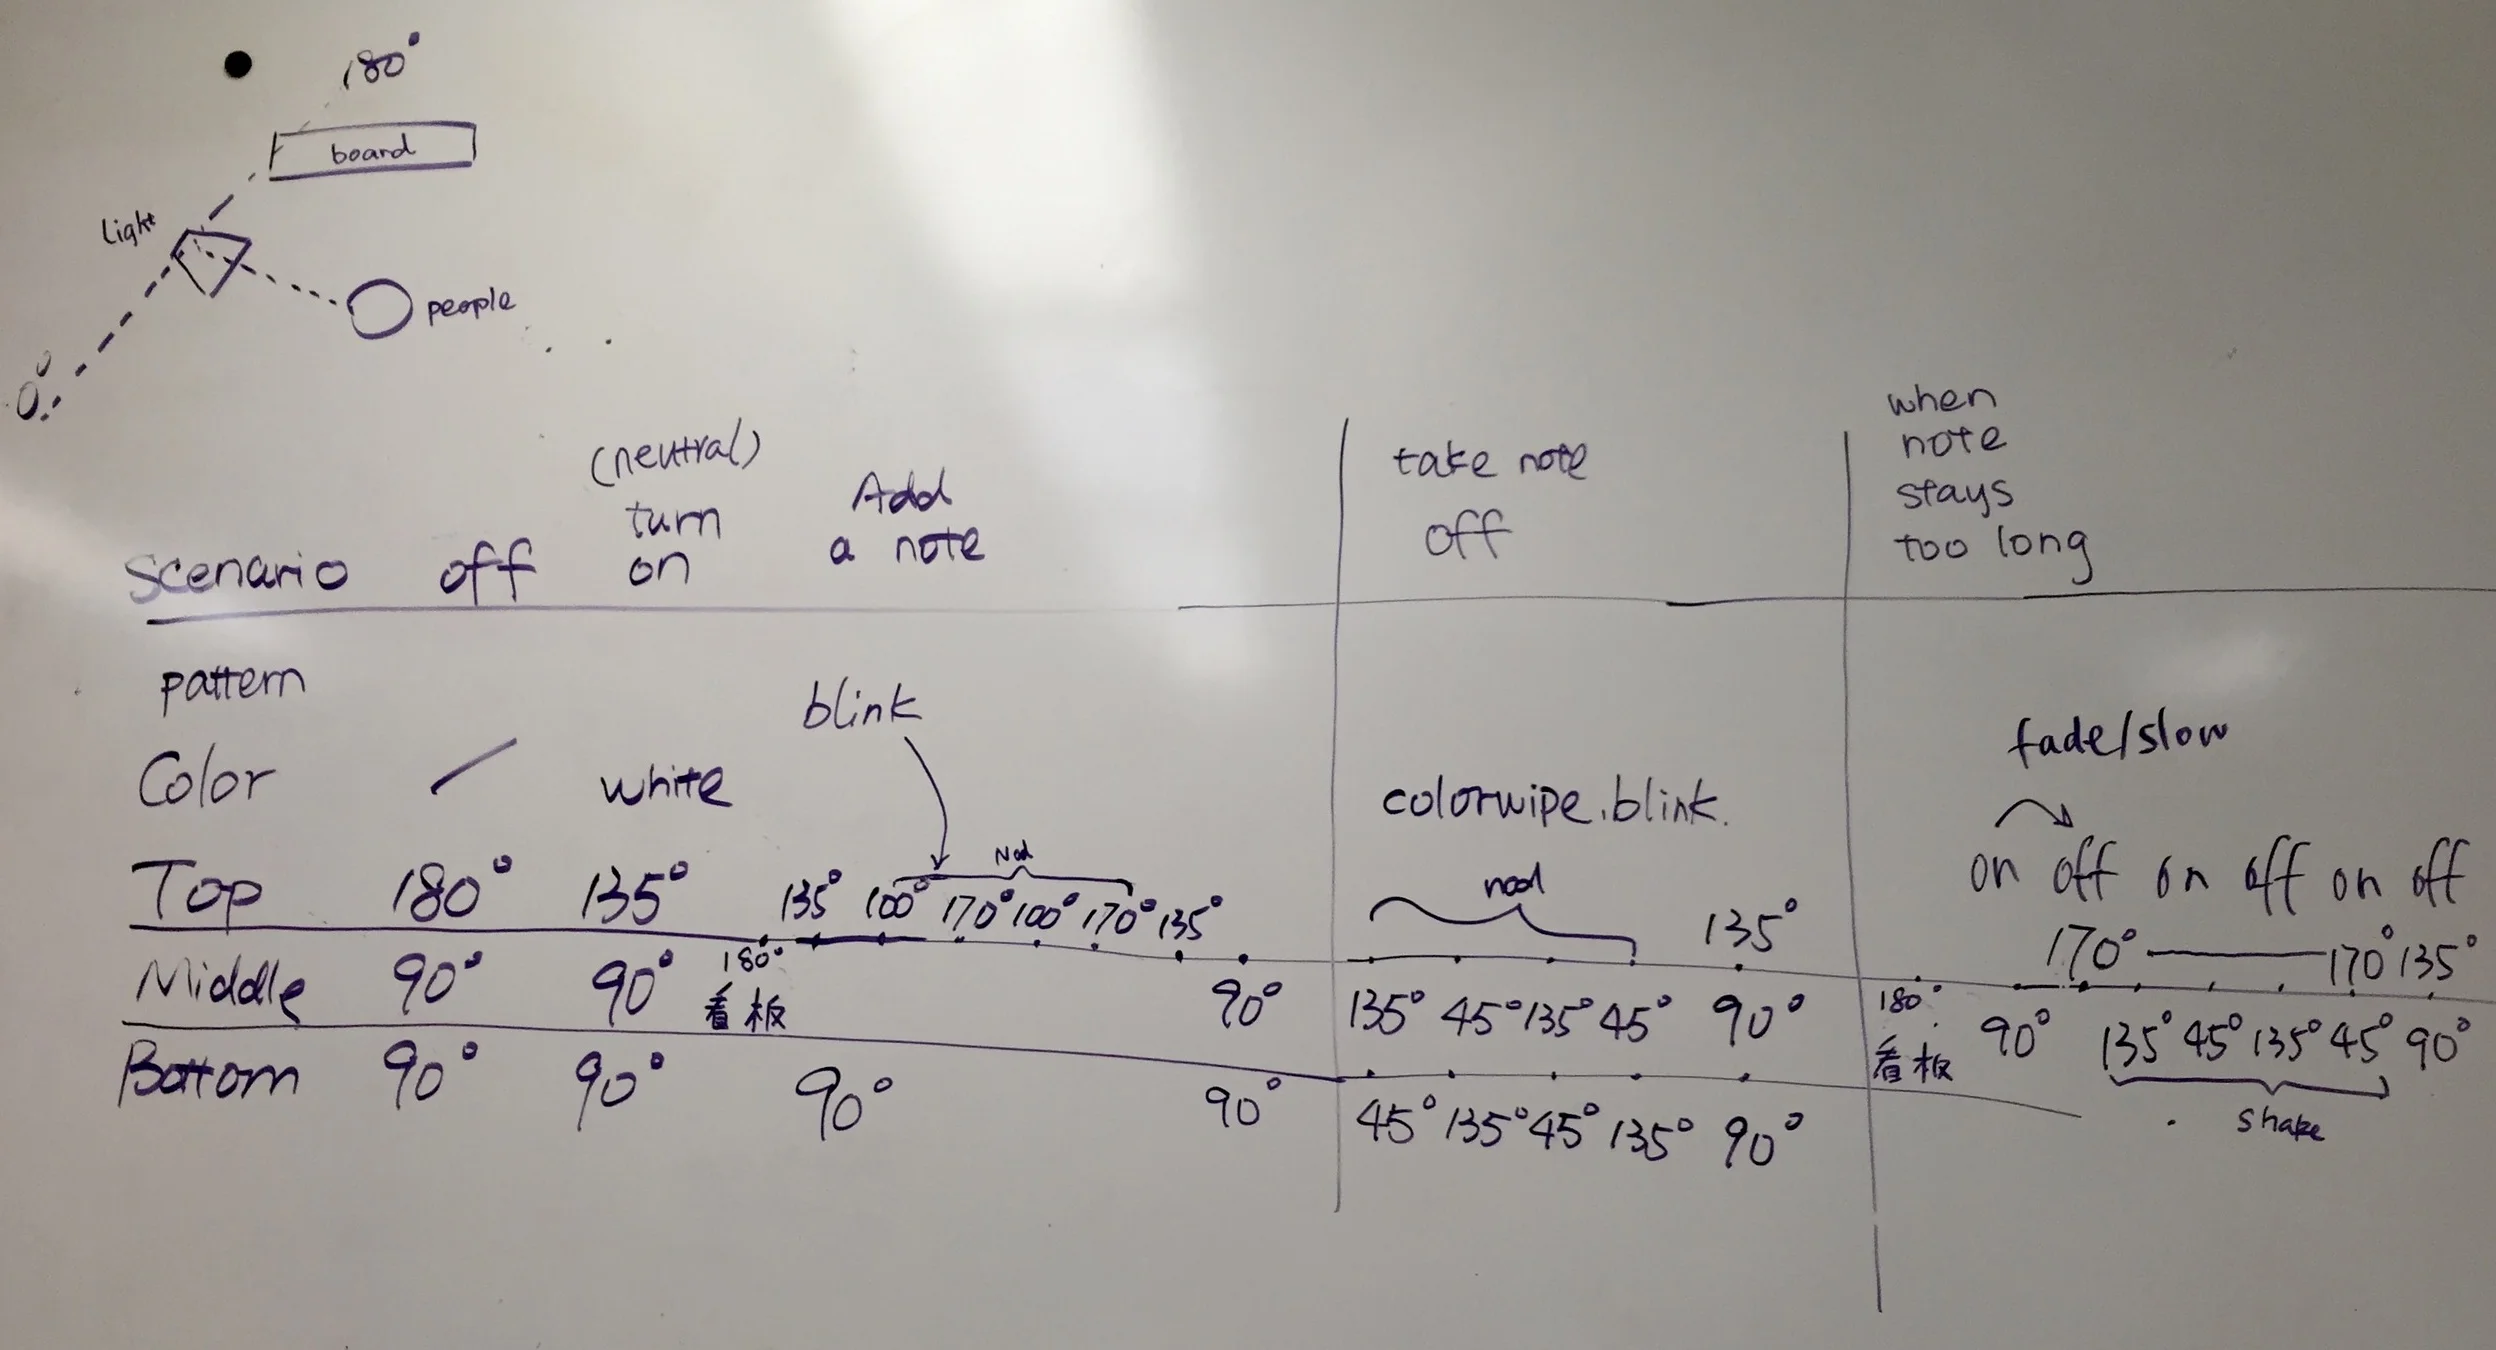 180°
board
light
people
0°
scenario off (neutral) turn on Add a note take note off when note stays too long
pattern blink fade/slow
Color / white colorwipe.blink.
Nod nod on off on off on off
Top 180° 135° 135° 100° 170° 100° 170° 135° 135° 170° 170° 135°
Middle 90° 90° 180° 看板 90° 135° 45° 135° 45° 90° 180° 看板 90° 135° 45° 135° 45° 90°
Bottom 90° 90° 90° 90° 45° 135° 45° 135° 90° shake